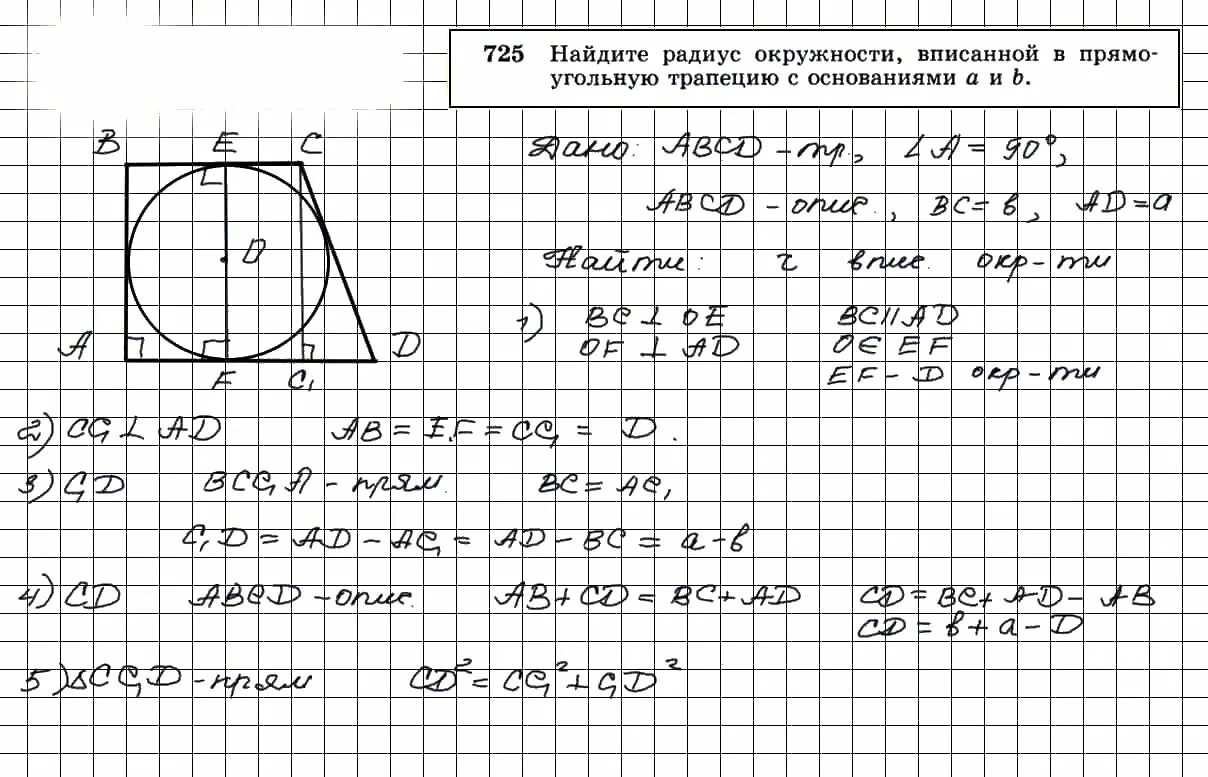 725 Найдите радиус окружности, вписанной в прямо-
угольную трапецию с основаниями a и b.
B E C
O
A D
F C₁
Дано: ABCD – тр., ∠A = 90°,
ABCD – опис., BC = в, AD = a
Найти: r впис. окр-ти
1) BC ⊥ OE BC || AD
OF ⊥ AD O ∈ EF
EF – D окр-ти
2) CC₁ ⊥ AD AB = EF = CC₁ = D.
3) C₁D BCC₁A – прям. BC = AC₁
C₁D = AD – AC₁ = AD – BC = a – в
4) CD ABCD – опис. AB + CD = BC + AD CD = BC + AD – AB
CD = в + a – D
5) ΔCC₁D – прям CD² = CC₁² + C₁D²